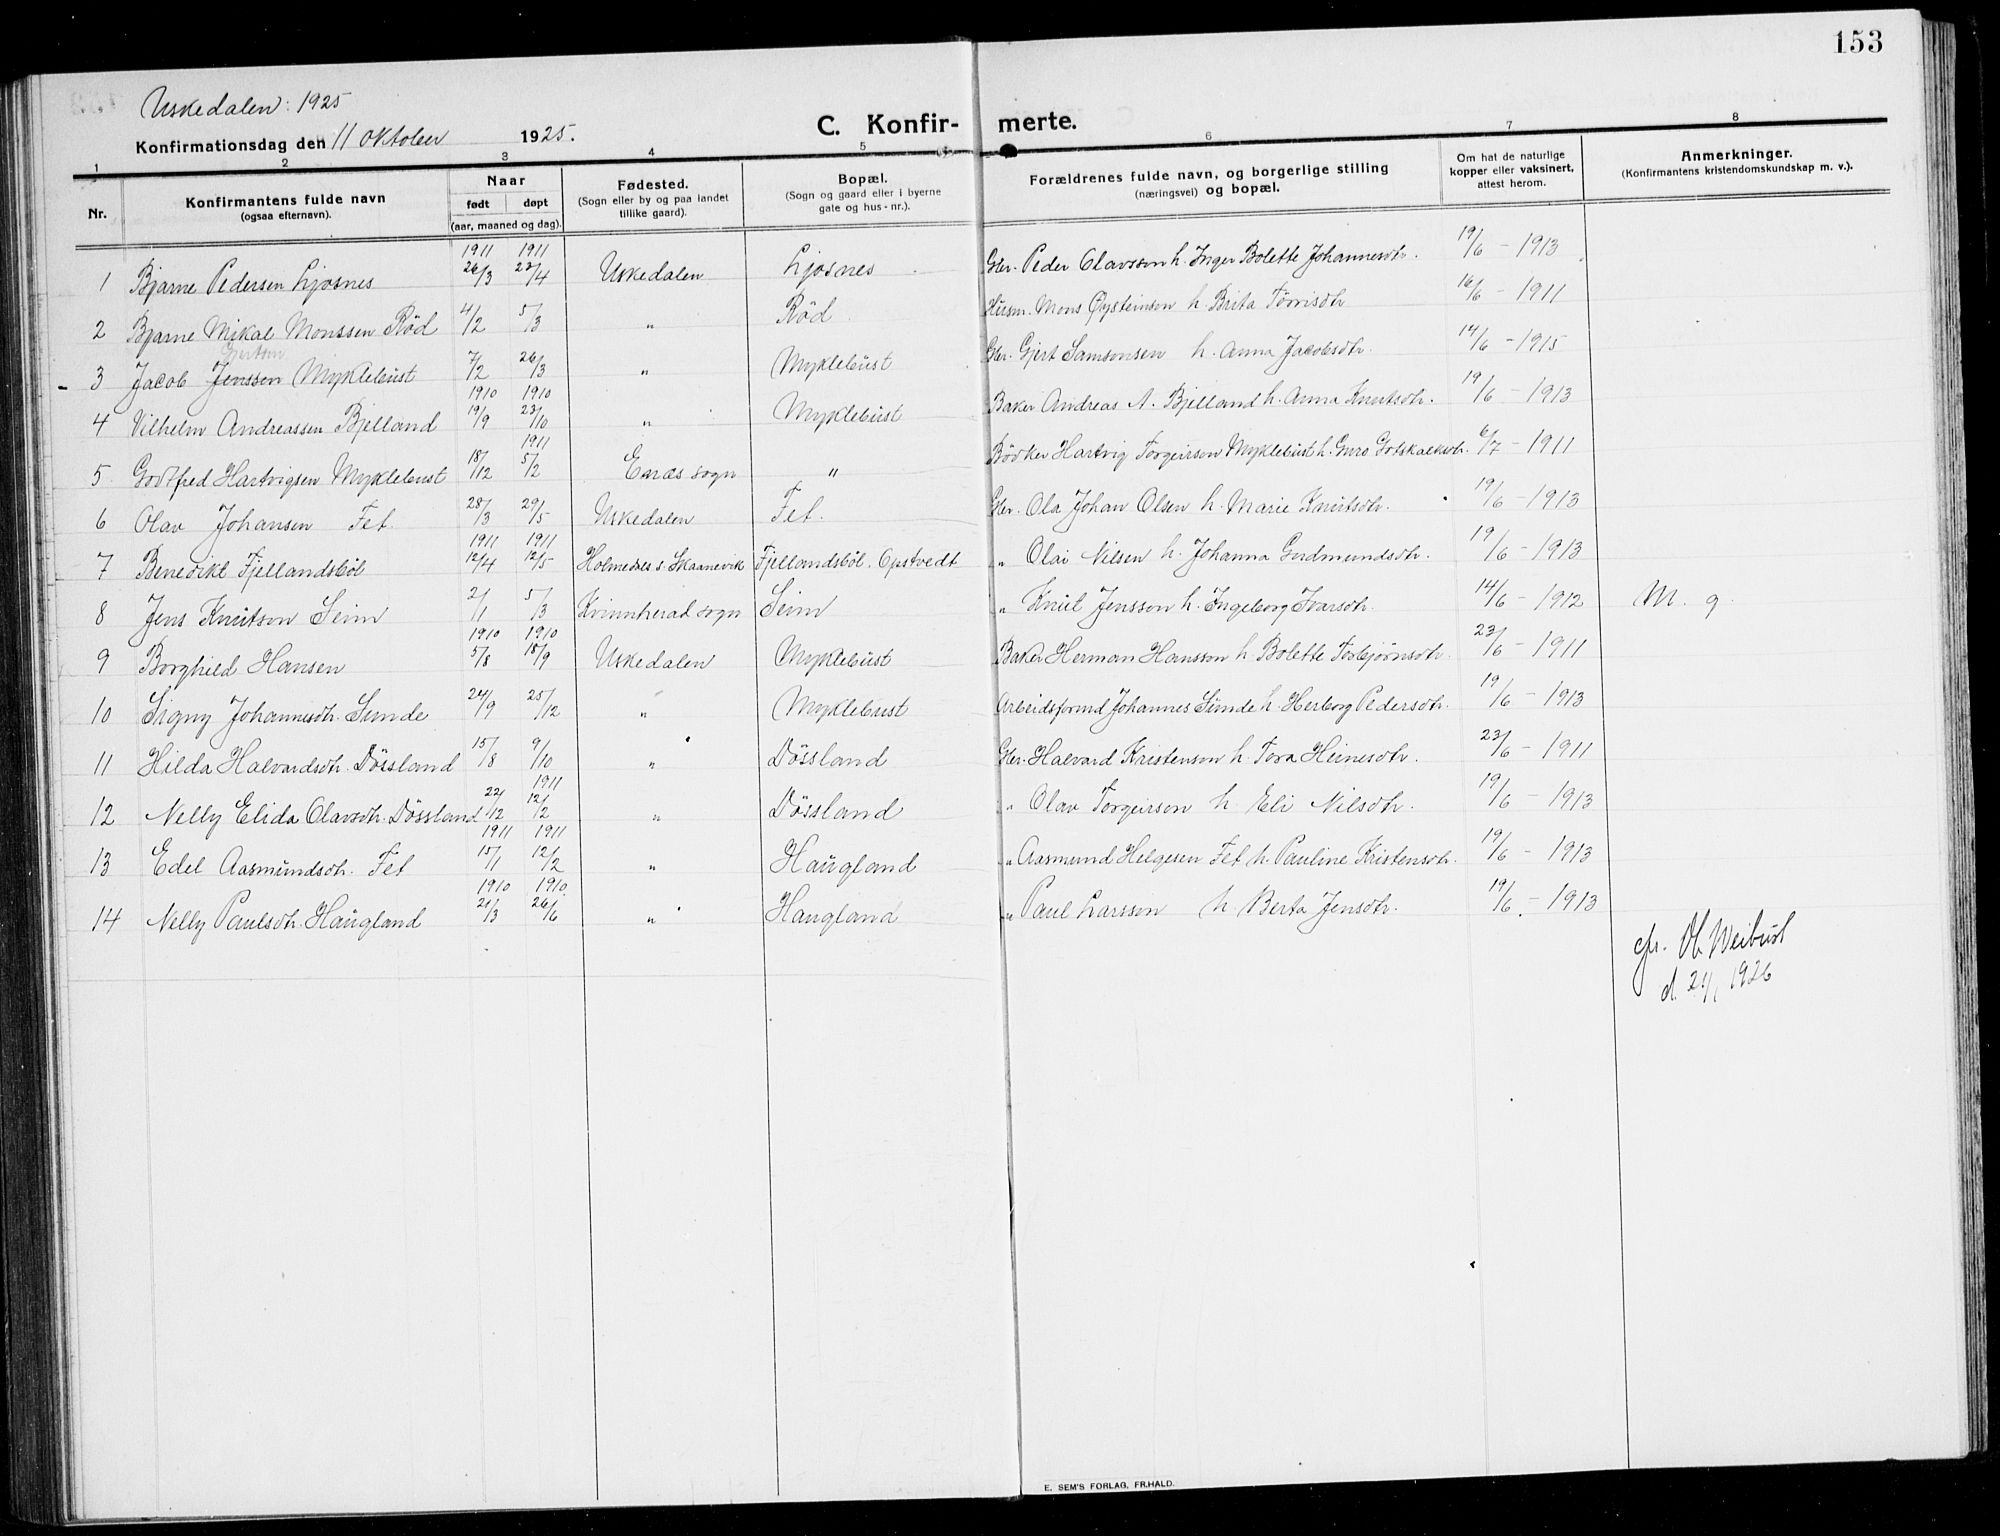 153
Uskedalen: 1925
Konfirmationsdag den 11 oktober 1925.
C. Konfir- merte.
1 2 3 4 5 6 7 8
Nr.
Konfirmantens fulde navn
(ogsaa efternavn).
Naar
født døpt
(aar, maaned og dag).
Fødested.
(Sogn eller by og paa landet
tillike gaard).
Bopæl.
(Sogn og gaard eller i byerne
gate og hus-nr.).
Forældrenes fulde navn, og borgerlige stilling
(næringsvei) og bopæl.
Om hat de naturlige
kopper eller vaksinert,
attest herom.
Anmerkninger.
(Konfirmantens kristendomskundskap m. v.).
1911 1911
1 Bjarne Pedersen Ljosnes 26/3 23/4 Uskedalen Ljosnes Gbr. Peder Olavsson h. Inger Bolette Johannesdtr. 19/6 - 1913
2 Bjarne Mikal Monssen Röd 4/2 5/3 " Röd Husm. Mons Øysteinson h. Brita Törrisdtr 16/6 - 1911
Gjertsen
3 Jacob Jenssen Myklebust 7/2 26/3 " Myklebust Gbr. Gjert Samsonsen h. Anna Jacobsdtr. 14/6 - 1915
1910 1910
4 Vilhelm Andreassen Bjelland 19/9 23/10 " Myklebust Baker Andreas A. Bjelland h. Anna Knutsdtr. 19/6 - 1913
1911
5 Godtfred Hartvigsen Myklebust 18/12 5/2 Enæs sogn " Bödker Hartvig Torgeirson Myklebust h. Guro Gotskalksdtr. 6/7 - 1911
6 Olav Johansen Fet. 28/3 29/5 Uskedalen Fet. Gbr. Ola Johan Olsen h. Marie Knutsdtr. 19/6 - 1913
1911 1911
7 Benedikt Fjellandsböl 12/4 12/5 Holmedals s. Skaanevik Fjellandsböl. Opstvedt " Olai Nilsen h. Johanna Gudmundsdtr. 19/6 - 1913
8 Jens Knutson Seim 2/1 5/3 Kvinnherad sogn Seim " Knut Jensson h. Ingeborg Ivarsdtr. 14/6 - 1912 M. g.
1910 1910
9 Borghild Hansen 5/8 18/9 Uskedalen Myklebust Baker Herman Hansson h. Bolette Torbjørnsdtr. 23/6 - 1911
10 Signy Johannesdtr. Sunde 24/9 25/12 " Myklebust Arbeidsformd Johannes Sunde h. Herborg Pedersdtr. 19/6 - 1913
11 Hilda Halvardsdtr. Dössland 15/8 9/10 " Dössland Gbr. Halvard Kristenson h. Tora Heinesdtr. 23/6 - 1911
1911
12 Nelly Elida Olavsdtr. Dössland 22/12 12/2 " Dössland " Olav Torgeirson h. Eli Nilsdtr. 19/6 - 1913
1911 1911
13 Edel Aasmundsdtr. Fet 15/1 12/2 " Haugland " Aasmund Helgesen Fet h. Pauline Kristensdtr. 19/6 - 1913
1910 1910
14 Nelly Paulsdtr. Haugland 21/3 26/6 " Haugland " Paul Larsson h. Berta Jensdtr. 19/6. - 1913
Weibust
d. 21/1 1926
E. SEM'S FORLAG, FR.HALD.